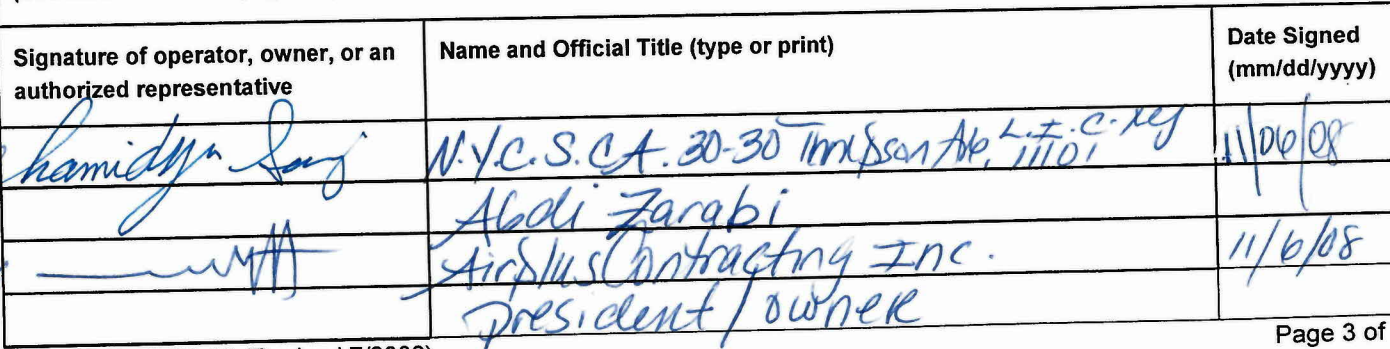 Signature of operator, owner, or an authorized representative
Name and Official Title (type or print)
Date Signed (mm/dd/yyyy)
N.Y.C.S.C.A. 30-30 Thompson Ave, L.I.C. NY 11101
11/06/08
Abdi Zarabi
Airplus Contracting Inc.
11/6/08
president / owner
Page 3 of